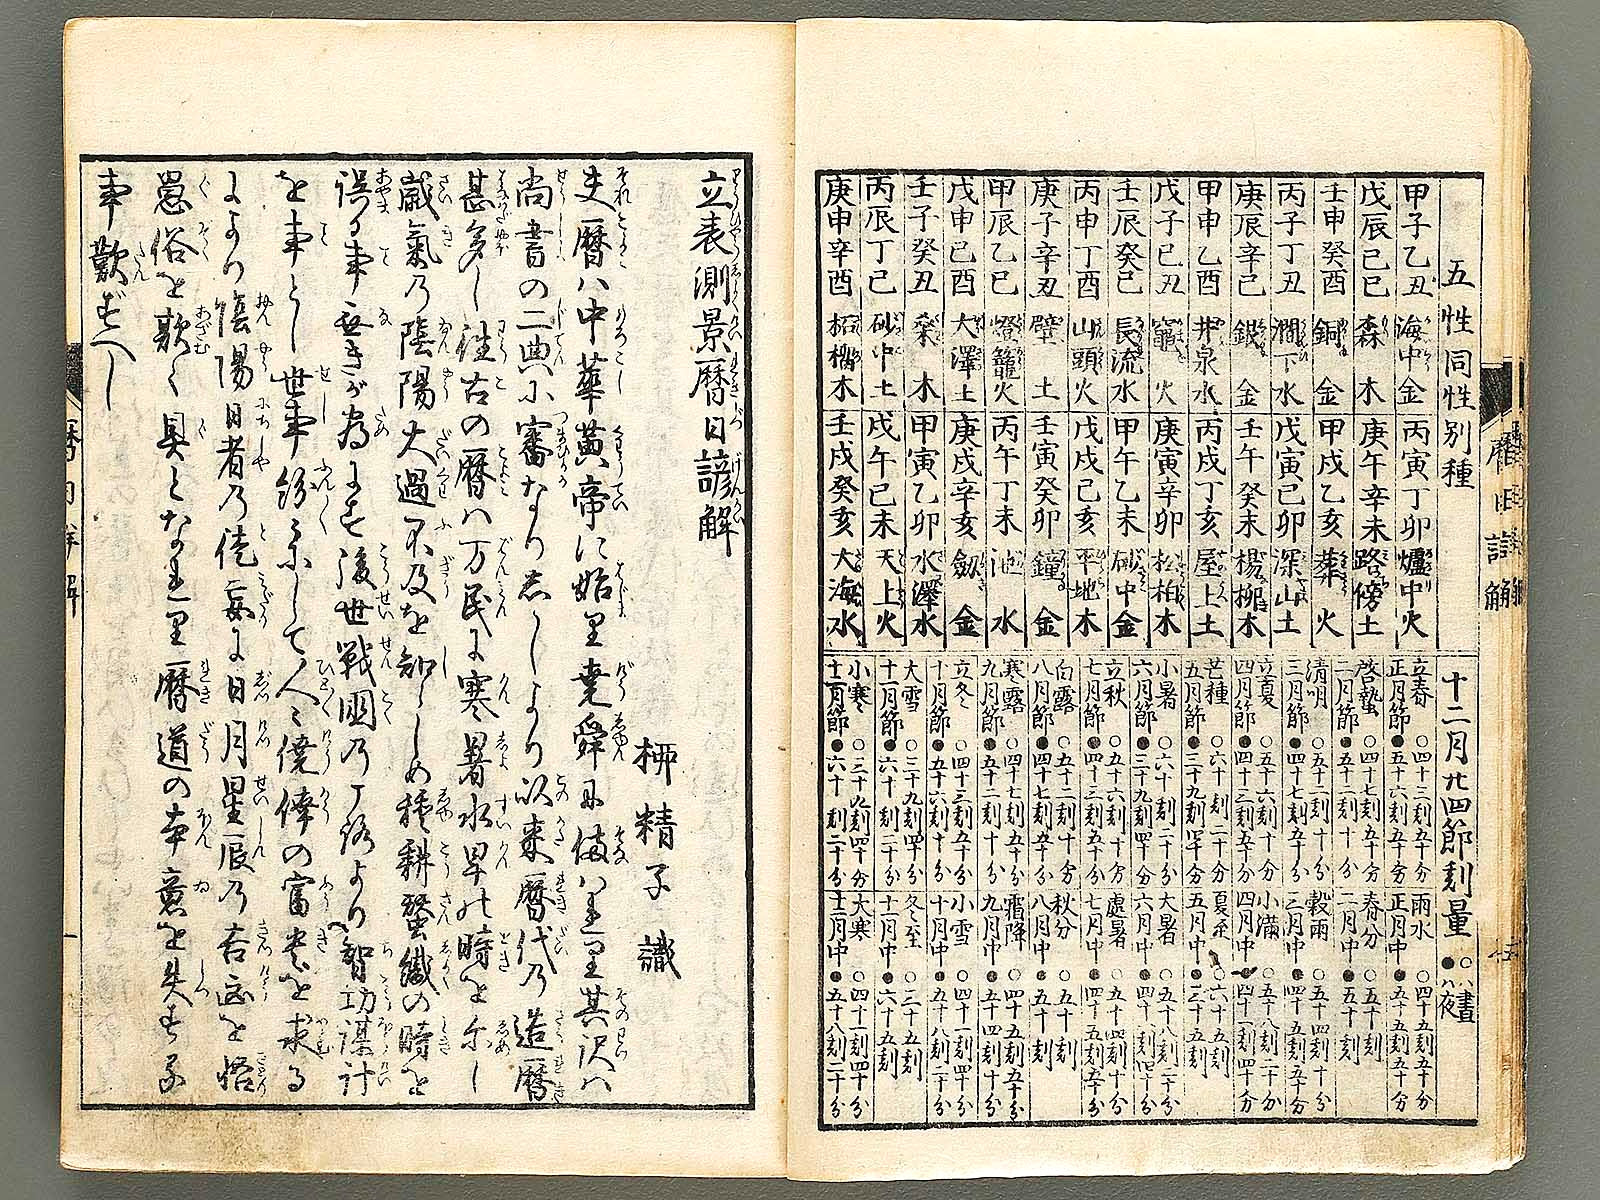 五性同性別種
甲子乙丑 海中金 丙寅丁卯 爐中火
戊辰己巳 森木 庚午辛未 路傍土
壬申癸酉 釼金 甲戌乙亥 葬火
丙子丁丑 澗下水 戊寅己卯 深山土
庚辰辛巳 鈸金 壬午癸未 楊柳木
甲申乙酉 井泉水 丙戌丁亥 屋上土
戊子己丑 竈火 庚寅辛卯 松柏木
壬辰癸巳 長流水 甲午乙未 砂中金
丙申丁酉 山頭火 戊戌己亥 平地木
庚子辛丑 壁土 壬寅癸卯 鐘金
甲辰乙巳 燈籠火 丙午丁未 池水
戊申己酉 大澤土 庚戌辛亥 釼金
壬子癸丑 桑木 甲寅乙卯 水澤水
丙辰丁巳 砂中土 戊午己未 天上火
庚申辛酉 柘榴木 壬戌癸亥 大海水
十二月廿四節刻量 ○ハ晝 ●ハ夜
立春 正月節 ○四十三刻五十分 ●五十六刻五十分 雨水 正月中 ○四十五刻五十分 ●五十四刻五十分
啓蟄 二月節 ○四十七刻五十分 ●五十二刻十分 春分 二月中 ○五十刻 ●五十刻
清明 三月節 ○五十二刻十分 ●四十七刻五十分 穀雨 三月中 ○五十四刻十分 ●四十五刻五十分
立夏 四月節 ○五十六刻十分 ●四十三刻五十分 小滿 四月中 ○五十八刻二十分 ●四十一刻四十分
芒種 五月節 ○六十刻二十分 ●三十九刻四十分 夏至 五月中 ○六十五刻 ●三十五刻
小暑 六月節 ○六十刻二十分 ●三十九刻四十分 大暑 六月中 ○五十八刻二十分 ●四十一刻四十分
立秋 七月節 ○五十六刻十分 ●四十三刻五十分 處暑 七月中 ○五十四刻十分 ●四十五刻五十分
白露 八月節 ○五十二刻十分 ●四十七刻五十分 秋分 八月中 ○五十刻 ●五十刻
寒露 九月節 ○四十七刻五十分 ●五十二刻十分 霜降 九月中 ○四十五刻五十分 ●五十四刻十分
立冬 十月節 ○四十三刻五十分 ●五十六刻十分 小雪 十月中 ○四十一刻四十分 ●五十八刻二十分
大雪 十一月節 ○三十九刻四十分 ●六十刻二十分 冬至 十一月中 ○三十五刻 ●六十五刻
小寒 十二月節 ○三十九刻四十分 ●六十刻二十分 大寒 十二月中 ○四十一刻四十分 ●五十八刻二十分
暦日諺解 五
立表測景暦日諺解
柳精子識
夫暦ハ中華黄帝に始里堯舜に備ハ里其訳ハ
尚書の二典に審なり志かしより以来暦代乃造暦
甚多し往古の暦ハ万民に寒暑水旱の時を示し
歳氣乃陰陽大過不及を知らしめ種耕蚕織の時を
誤る事無きが為にす後世戦國乃ノ路より智功謀計
を事とし世事紛々にして人々僥倖の富貴を求る
により陰陽日者乃徒妄に日月星辰乃吉凶を悟
愚俗を欺く具となれ里暦道の本意を失する
事歎ずべし
一